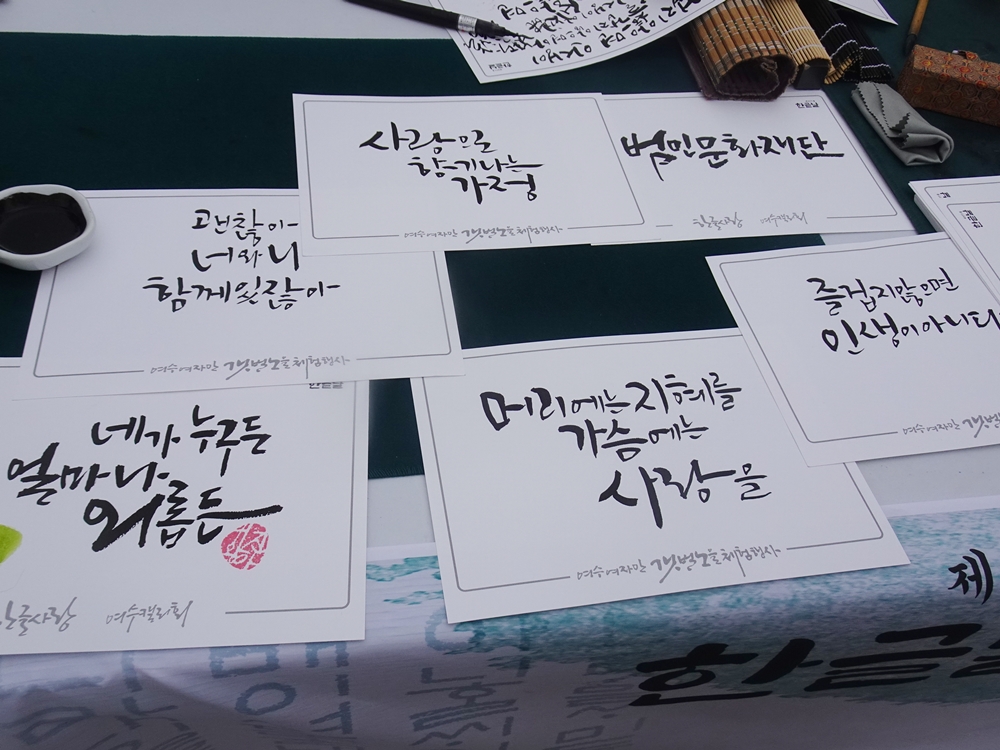 사랑으로
향기나는
가정
여수여자만 갯벌노을체험행사
한글날
범민문화재단
한글사랑 여수캘리회
괜찮아
너와 나
함께있잖아
여수여자만 갯벌노을체험행사
즐겁지않으면
인생이아니다
여수여자만
한글날
네가 누구든
얼마나
외롭든
한글사랑 여수캘리회
머리에는 지혜를
가슴에는
사랑을
여수여자만 갯벌노을체험행사
제
한글